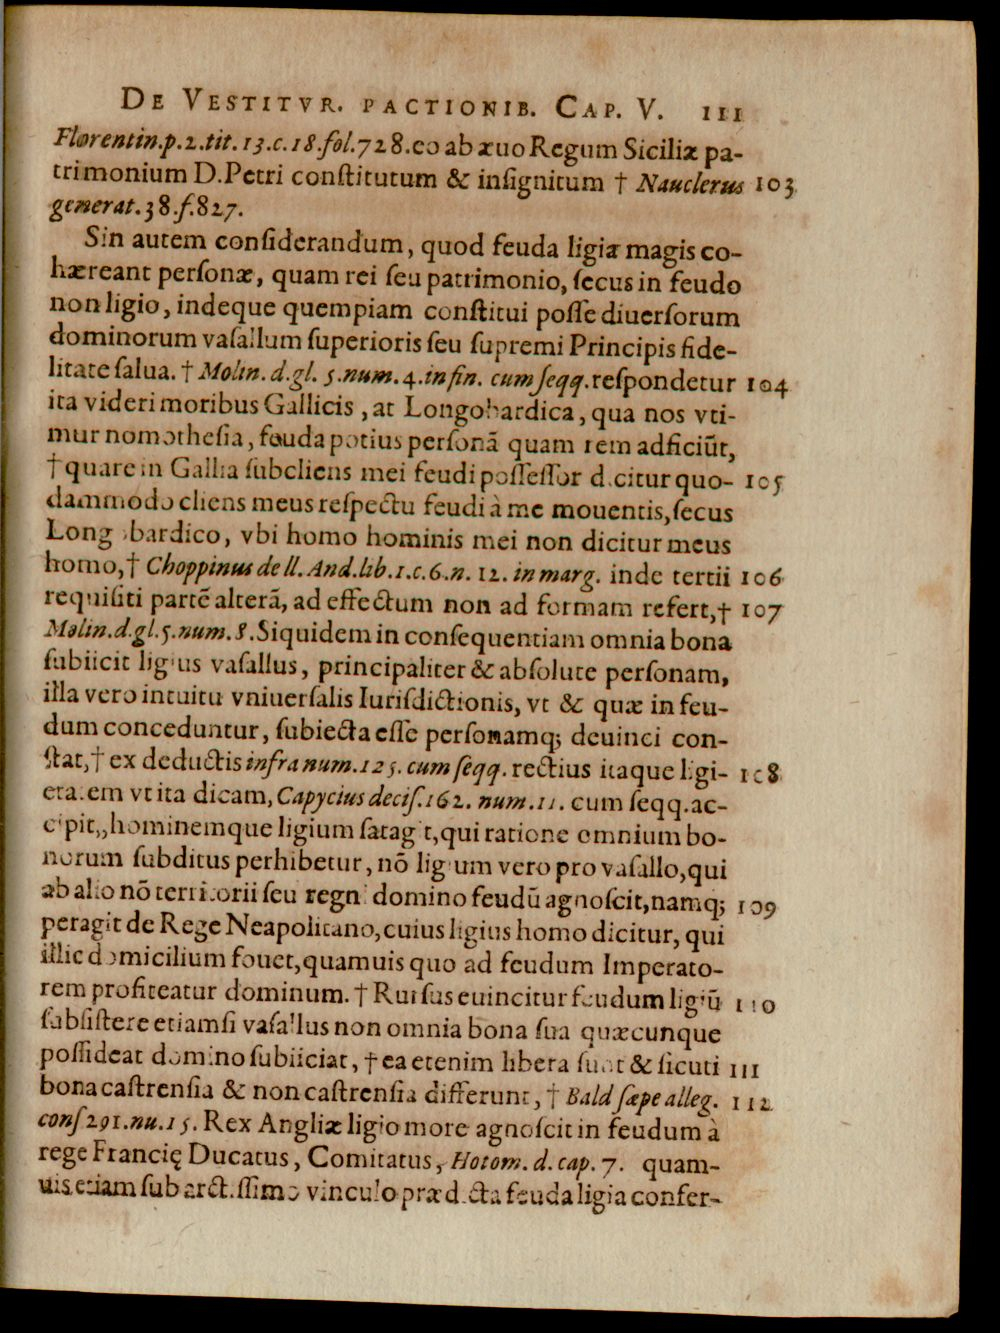 DE VESTITVR. PACTIONIB. CAP. V. 111
Florentin.p.2.tit.13.c.18.fol.728.eo ab æuo Regum Siciliæ pa-
trimonium D.Petri constitutum & insignitum † Nauclerus 103
generat.38.f.827.
Sin autem considerandum, quod feuda ligia magis co-
hæreant personæ, quam rei seu patrimonio, secus in feudo
non ligio, indeque quempiam constitui posse diuersorum
dominorum vasallum superioris seu supremi Principis fide-
litate salua. † Molin.d.gl. 5.num.4.in fin. cum seqq. respondetur 104
ita videri moribus Gallicis, at Longobardica, qua nos vti-
mur nomothesia, feuda potius personã quam rem adficiũt,
† quare in Gallia subcliens mei feudi possessor dicitur quo- 105
dammodo cliens meus respectu feudi à me mouentis, secus
Longobardico, vbi homo hominis mei non dicitur meus
homo, † Choppinus de ll. And.lib.1.c.6.n. 12. in marg. inde tertii 106
requisiti partẽ alterã, ad effectum non ad formam refert, † 107
Molin.d.gl.5.num.8. Siquidem in consequentiam omnia bona
subiicit ligius vasallus, principaliter & absolute personam,
illa vero intuitu vniuersalis Iurisdictionis, vt & quæ in feu-
dum conceduntur, subiecta esse personamq; deuinci con-
stat, † ex deductis infra num.125. cum seqq. rectius itaque ligi- 108
eta:em vt ita dicam, Capycius decis.162. num.11. cum seqq. ac-
cipit,, hominemque ligium satagit, qui ratione omnium bo-
norum subditus perhibetur, nõ ligium vero pro vasallo, qui
ab alio nõ territorii seu regni domino feudũ agnoscit, namq; 109
peragit de Rege Neapolitano, cuius ligius homo dicitur, qui
illic domicilium fouet, quamuis quo ad feudum Imperato-
rem profiteatur dominum. † Rursus euincitur feudum ligiũ 110
subsistere etiamsi vasallus non omnia bona sua quæcunque
possideat domino subiiciat, † ea etenim libera sunt & sicuti 111
bona castrensia & non castrensia differunt, † Bald sæpe alleg. 112
cons 291.nu.15. Rex Angliæ ligio more agnoscit in feudum à
rege Francię Ducatus, Comitatus, Hotom. d. cap. 7. quam-
uis etiam sub arctissimo vinculo prædicta feuda ligia confer-